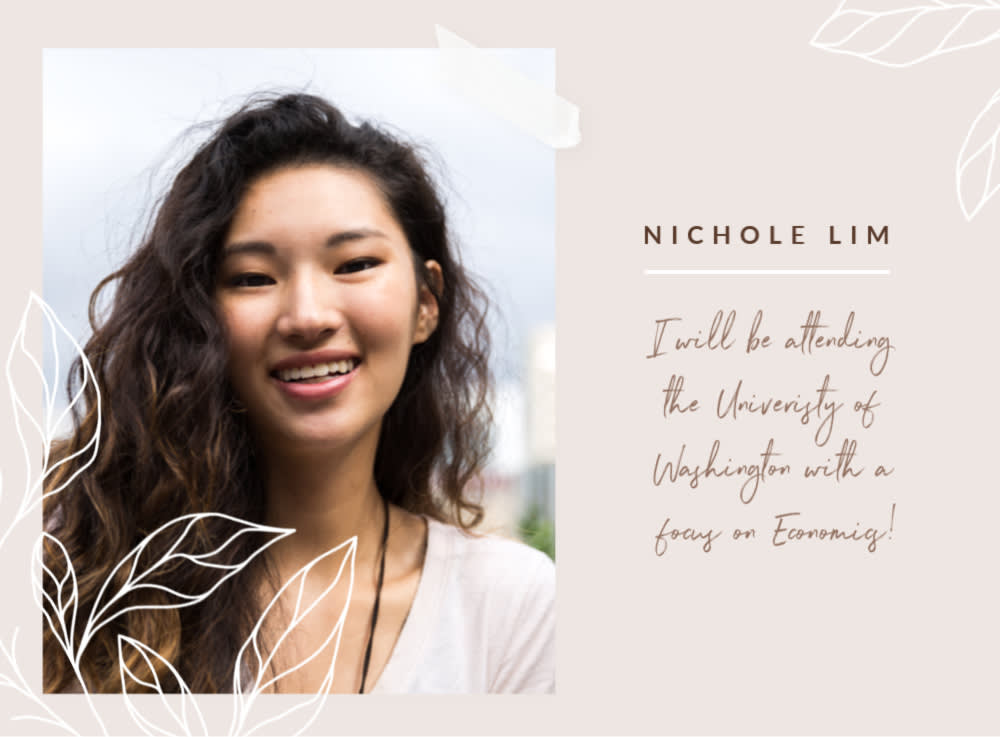 NICHOLE LIM
I will be attending
the Univeristy of
Washington with a
focus on Economics!